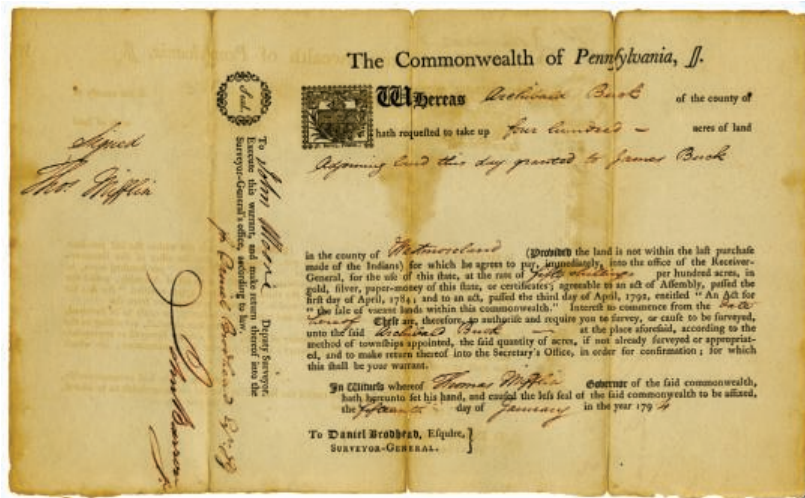 The Commonwealth of Pennsylvania, ſſ.
Whereas Archibald Buck of the county of
hath requeſted to take up four hundred – acres of land
Adjoining land this day granted to James Buck
in the county of Westmoreland (Provided the land is not within the laſt purchaſe
made of the Indians) for which he agrees to pay, immediately, into the office of the Receiver-
General, for the uſe of this ſtate, at the rate of fifty shillings per hundred acres, in
gold, ſilver, paper-money of this ſtate, or certificates; agreeable to an act of Aſſembly, paſſed the
firſt day of April, 1784; and to an act, paſſed the third day of April, 1792, entitled "An Act for
"the ſale of vacant lands within this commonwealth." Intereſt to commence from the date
hereof Theſe are, therefore, to authoriſe and require you to ſurvey, or cauſe to be ſurveyed,
unto the ſaid Archibald Buck — at the place aforeſaid, according to the
method of townſhips appointed, the ſaid quantity of acres, if not already ſurveyed or appropriat-
ed, and to make return thereof into the Secretary's Office, in order for confirmation; for which
this ſhall be your warrant.
In Witneſs whereof Thomas Mifflin Governor of the ſaid commonwealth,
hath hereunto ſet his hand, and cauſed the leſs ſeal of the ſaid commonwealth to be affixed,
the fifteenth day of January in the year 1794
To Daniel Brodhead, Eſquire,
Surveyor-General.
Seal.
To John Moore Deputy Surveyor.
Execute this warrant, and make return thereof into the
Surveyor-General's office, according to law.
Daniel Brodhead
Signed
Thos. Mifflin